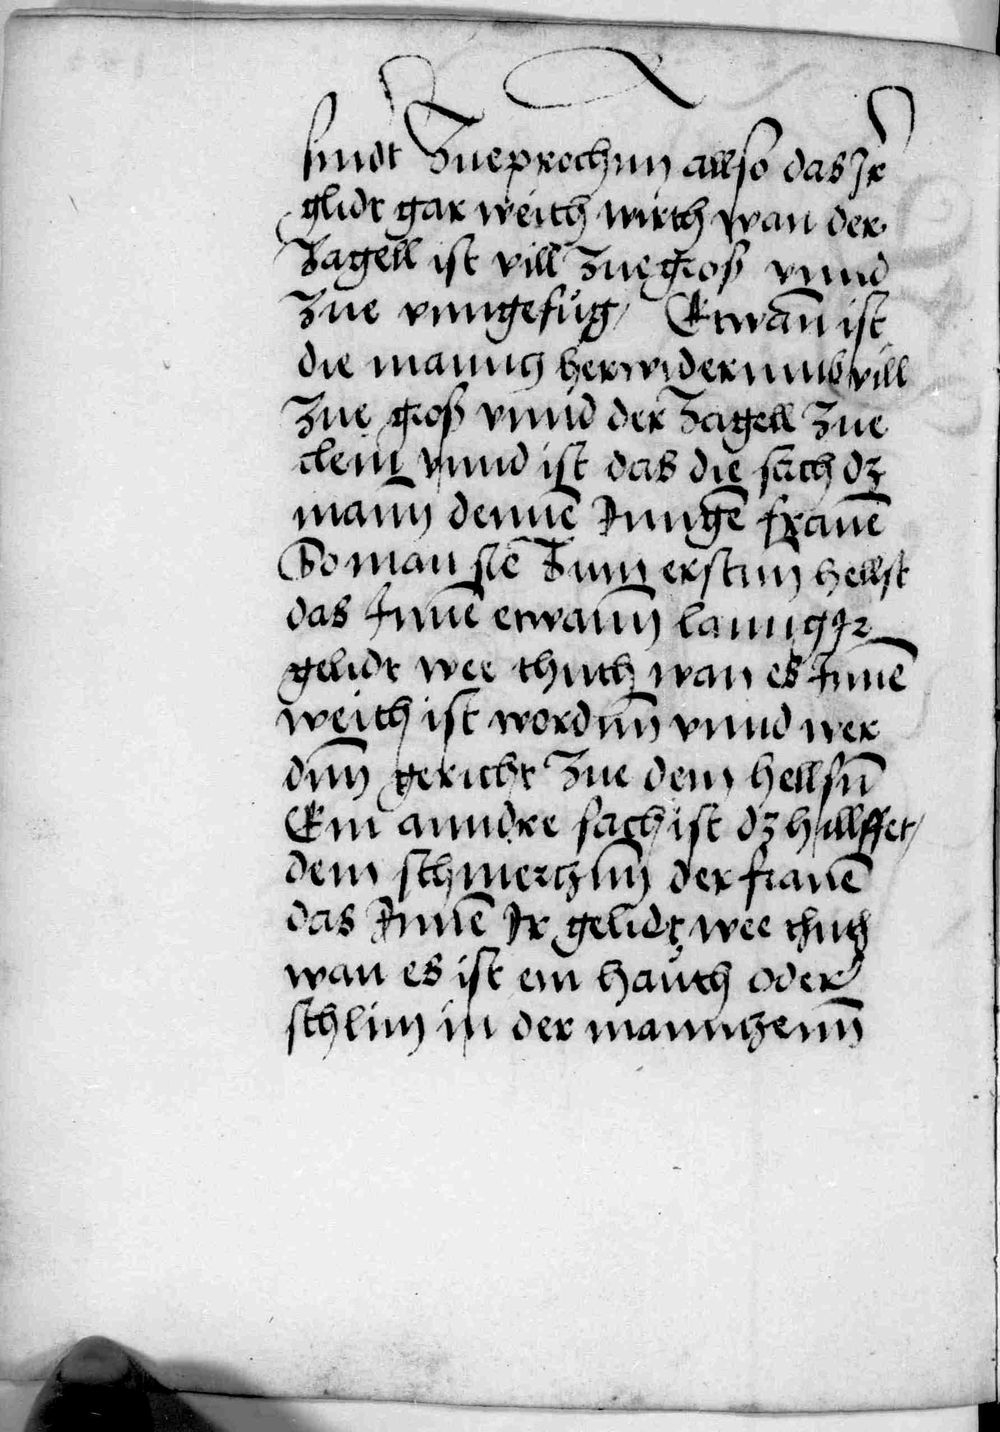 sindt Zueprochnn allso das Jr
glidt gar weich wirth wan der
Zagell ist vill Zue groß vnnd
Zue vnngefůg / Etwan̄ ist
die manng herwiderumb vill
Zue groß vnnd der Zagell Zue
clein vnnd ist das die sach dz
mann dennē Jungē frauē
So man siē Zum erstnn hellst
das Jnnē etwann lanng Jr
gelidt wee thuth wan es Jnnē
weich ist wordnn vnnd wer
dnn gericht Zue dem hellsn̄
Ein anndre sach ist dz hillffet /
dem schmercznn der frauē
das Jnnē Jr gelidt wee thuth
wan es ist ein hauth oder
schlim in der manntzenn